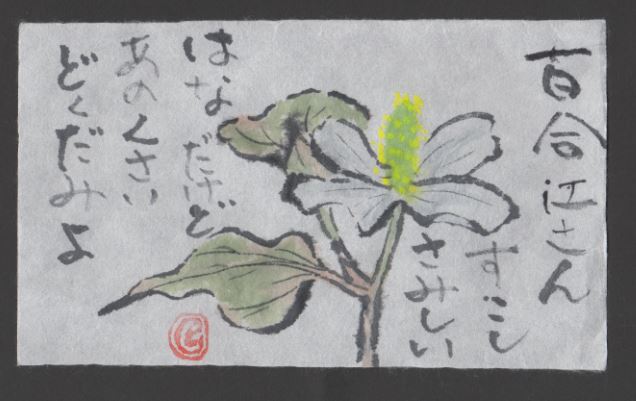 百合江さん
すこし
さみしい
はなだけど
あのくさい
どくだみよ